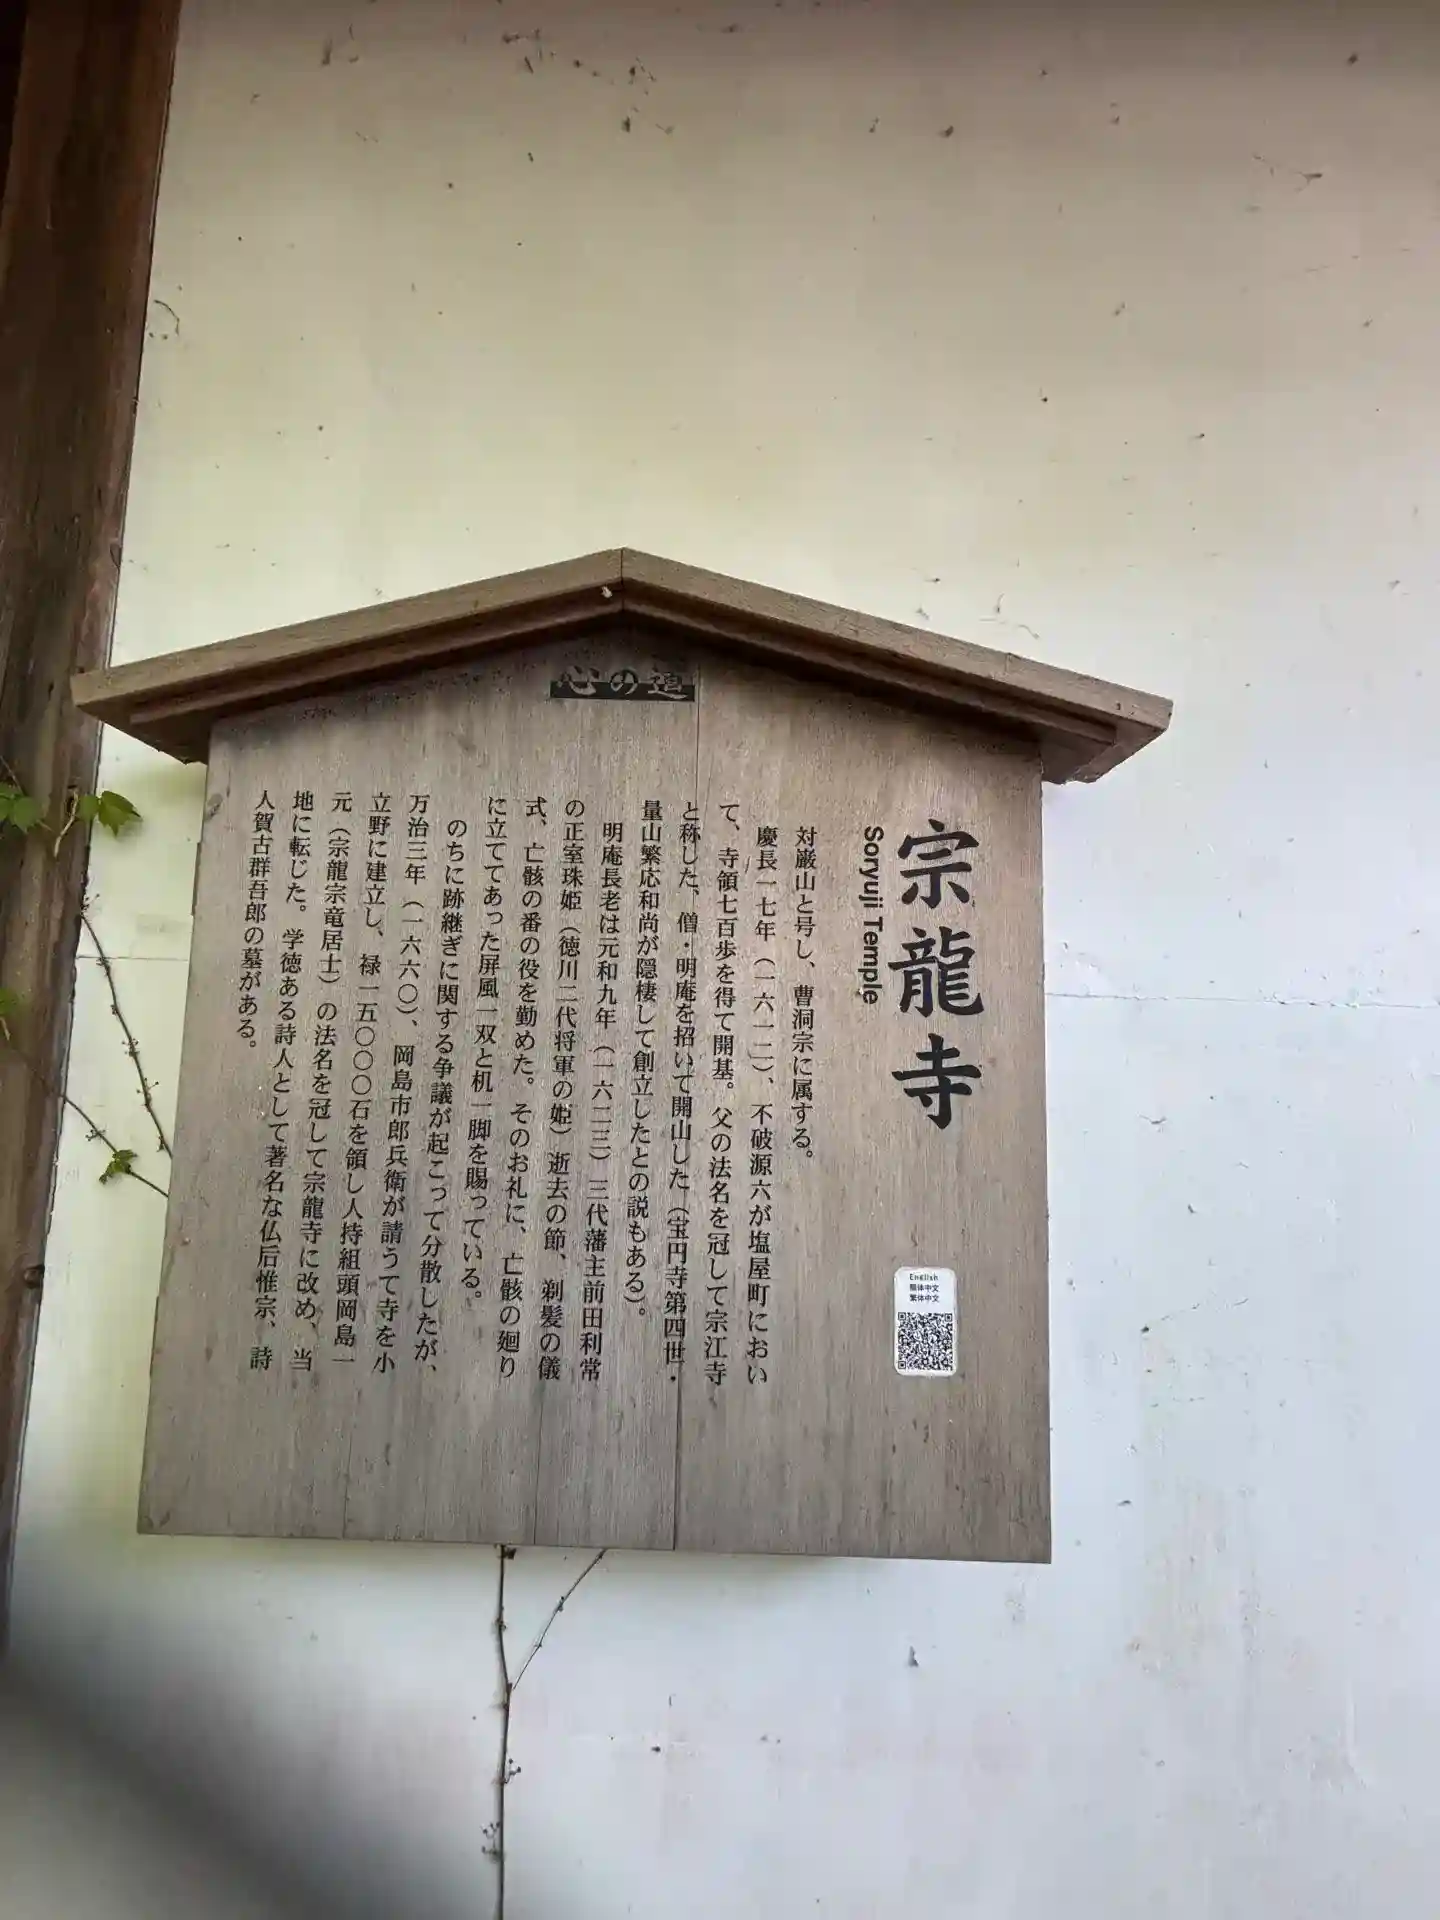 心の道
宗龍寺
Soryuji Temple
English
簡体中文
繁体中文
対巌山と号し、曹洞宗に属する。
慶長一七年（一六一二）、不破源六が塩屋町におい
て、寺領七百歩を得て開基。父の法名を冠して宗江寺
と称した、僧・明庵を招いて開山した（宝円寺第四世・
量山繁応和尚が隠棲して創立したとの説もある）。
明庵長老は元和九年（一六二三）三代藩主前田利常
の正室珠姫（徳川二代将軍の姫）逝去の節、剃髪の儀
式、亡骸の番の役を勤めた。そのお礼に、亡骸の廻り
に立ててあった屏風一双と机一脚を賜っている。
のちに跡継ぎに関する争議が起こって分散したが、
万治三年（一六六〇）、岡島市郎兵衛が請うて寺を小
立野に建立し、禄一五〇〇〇石を領し人持組頭岡島一
元（宗龍宗竜居士）の法名を冠して宗龍寺に改め、当
地に転じた。学徳ある詩人として著名な仏后惟宗、詩
人賀古群吾郎の墓がある。